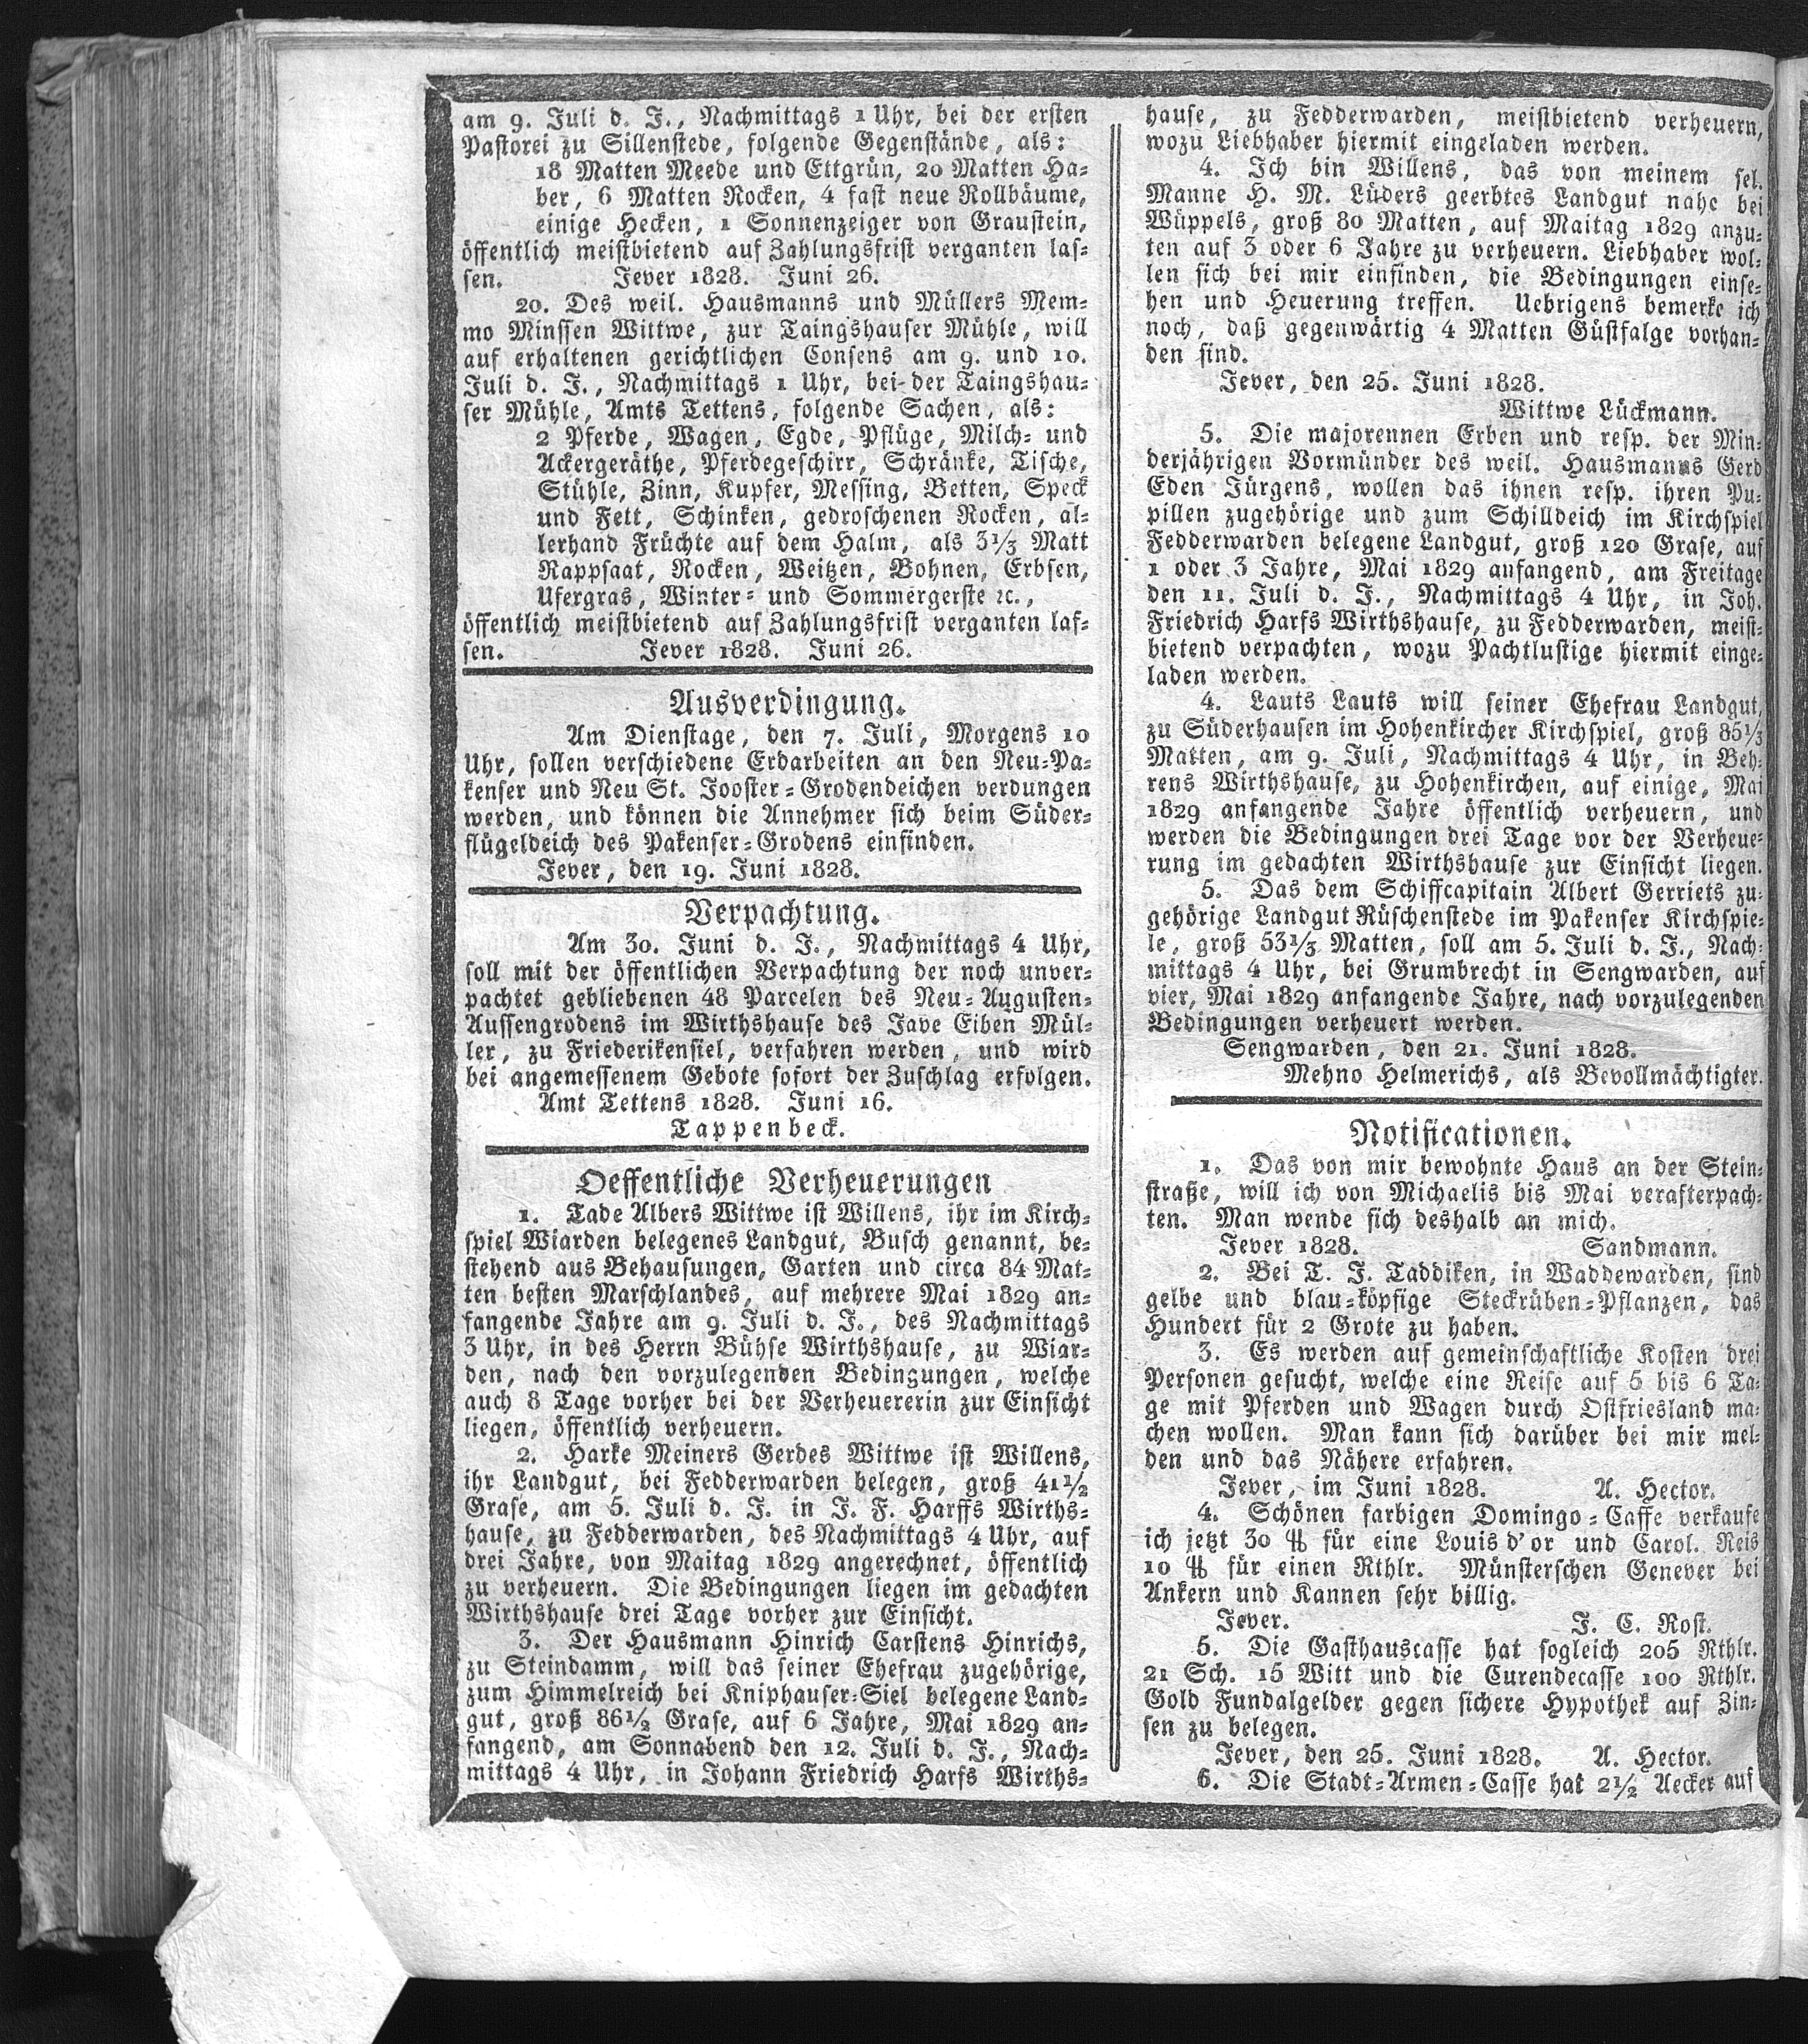 am 9. Juli d. J., Nachmittags 1 Uhr, bei der ersten
Pastorei zu Sillenstede, folgende Gegenstände, als:
18 Matten Meede und Ettgrün, 20 Matten Ha-
ber, 6 Matten Rocken, 4 fast neue Rollbäume,
einige Hecken, 1 Sonnenzeiger von Graustein,
öffentlich meistbietend auf Zahlungsfrist verganten las-
sen. Jever 1828. Juni 26.
20. Des weil. Hausmanns und Müllers Mem-
mo Minssen Wittwe, zur Taingshauser Mühle, will
auf erhaltenen gerichtlichen Consens am 9. und 10.
Juli d. J., Nachmittags 1 Uhr, bei der Taingshau-
ser Mühle, Amts Tettens, folgende Sachen, als:
2 Pferde, Wagen, Egde, Pflüge, Milch- und
Ackergeräthe, Pferdegeschirr, Schränke, Tische,
Stühle, Zinn, Kupfer, Messing, Betten, Speck
und Fett, Schinken, gedroschenen Rocken, al-
lerhand Früchte auf dem Halm, als 3 1/3 Matt
Rappsaat, Rocken, Weitzen, Bohnen, Erbsen,
Ufergras, Winter- und Sommergerste ꝛc.,
öffentlich meistbietend auf Zahlungsfrist verganten las-
sen. Jever 1828. Juni 26.
Ausverdingung.
Am Dienstage, den 7. Juli, Morgens 10
Uhr, sollen verschiedene Erdarbeiten an den Neu-Pa-
kenser und Neu St. Jooster-Grodendeichen verdungen
werden, und können die Annehmer sich beim Süder-
flügeldeich des Pakenser-Grodens einfinden.
Jever, den 19. Juni 1828.
Verpachtung.
Am 30. Juni d. J., Nachmittags 4 Uhr,
soll mit der öffentlichen Verpachtung der noch unver-
pachtet gebliebenen 48 Parcelen des Neu-Augusten-
Aussengrodens im Wirthshause des Jave Eiben Mül-
ler, zu Friederikensiel, verfahren werden, und wird
bei angemessenem Gebote sofort der Zuschlag erfolgen.
Amt Tettens 1828. Juni 16.
Tappenbeck.
Oeffentliche Verheuerungen
1. Tade Albers Wittwe ist Willens, ihr im Kirch-
spiel Wiarden belegenes Landgut, Busch genannt, be-
stehend aus Behausungen, Garten und circa 84 Mat-
ten besten Marschlandes, auf mehrere Mai 1829 an-
fangende Jahre am 9. Juli d. J., des Nachmittags
3 Uhr, in des Herrn Bühse Wirthshause, zu Wiar-
den, nach den vorzulegenden Bedingungen, welche
auch 8 Tage vorher bei der Verheuererin zur Einsicht
liegen, öffentlich verheuern.
2. Harke Meiners Gerdes Wittwe ist Willens,
ihr Landgut, bei Fedderwarden belegen, groß 41 1/2
Grase, am 5. Juli d. J. in J. F. Harffs Wirths-
hause, zu Fedderwarden, des Nachmittags 4 Uhr, auf
drei Jahre, von Maitag 1829 angerechnet, öffentlich
zu verheuern. Die Bedingungen liegen im gedachten
Wirthshause drei Tage vorher zur Einsicht.
3. Der Hausmann Hinrich Carstens Hinrichs,
zu Steindamm, will das seiner Ehefrau zugehörige,
zum Himmelreich bei Kniphauser-Siel belegene Land-
gut, groß 86 1/2 Grase, auf 6 Jahre, Mai 1829 an-
fangend, am Sonnabend den 12. Juli d. J., Nach-
mittags 4 Uhr, in Johann Friedrich Harfs Wirths-
hause, zu Fedderwarden, meistbietend verheuern,
wozu Liebhaber hiermit eingeladen werden.
4. Ich bin Willens, das von meinem sel.
Manne H. M. Lüders geerbtes Landgut nahe bei
Wüppels, groß 80 Matten, auf Maitag 1829 anzu-
ten auf 3 oder 6 Jahre zu verheuern. Liebhaber wol-
len sich bei mir einfinden, die Bedingungen einse-
hen und Heuerung treffen. Uebrigens bemerke ich
noch, daß gegenwärtig 4 Matten Güstfalge vorhan-
den sind.
Jever, den 25. Juni 1828.
Wittwe Lückmann.
5. Die majorennen Erben und resp. der Min-
derjährigen Vormünder des weil. Hausmanns Gerd
Eden Jürgens, wollen das ihnen resp. ihren Pu-
pillen zugehörige und zum Schilldeich im Kirchspiel
Fedderwarden belegene Landgut, groß 120 Grase, auf
1 oder 3 Jahre, Mai 1829 anfangend, am Freitage
den 11. Juli d. J., Nachmittags 4 Uhr, in Joh.
Friedrich Harfs Wirthshause, zu Fedderwarden, meist-
bietend verpachten, wozu Pachtlustige hiermit einge-
laden werden.
4. Lauts Lauts will seiner Ehefrau Landgut,
zu Süderhausen im Hohenkircher Kirchspiel, groß 85 1/3
Matten, am 9. Juli, Nachmittags 4 Uhr, in Beh-
rens Wirthshause, zu Hohenkirchen, auf einige, Mai
1829 anfangende Jahre öffentlich verheuern, und
werden die Bedingungen drei Tage vor der Verheue-
rung im gedachten Wirthshause zur Einsicht liegen.
5. Das dem Schiffcapitain Albert Gerriets zu-
gehörige Landgut Rüschenstede im Pakenser Kirchspie-
le, groß 53 1/3 Matten, soll am 5. Juli d. J., Nach-
mittags 4 Uhr, bei Grumbrecht in Sengwarden, auf
vier, Mai 1829 anfangende Jahre, nach vorzulegenden
Bedingungen verheuert werden.
Sengwarden, den 21. Juni 1828.
Mehno Helmerichs, als Bevollmächtigter.
Notificationen.
1. Das von mir bewohnte Haus an der Stein-
straße, will ich von Michaelis bis Mai verafterpach-
ten. Man wende sich deshalb an mich.
Jever 1828. Sandmann.
2. Bei T. J. Taddiken, in Waddewarden, sind
gelbe und blau-köpfige Steckrüben-Pflanzen, das
Hundert für 2 Grote zu haben.
3. Es werden auf gemeinschaftliche Kosten drei
Personen gesucht, welche eine Reise auf 5 bis 6 Ta-
ge mit Pferden und Wagen durch Ostfriesland ma-
chen wollen. Man kann sich darüber bei mir mel-
den und das Nähere erfahren.
Jever, im Juni 1828. A. Hector.
4. Schönen farbigen Domingo-Caffe verkaufe
ich jetzt 30 ℔ für eine Louis d'or und Carol. Reis
10 ℔ für einen Rthlr. Münsterschen Genever bei
Ankern und Kannen sehr billig.
Jever. J. C. Rost.
5. Die Gasthauscasse hat sogleich 205 Rthlr.
21 Sch. 15 Witt und die Curendecasse 100 Rthlr.
Gold Fundalgelder gegen sichere Hypothek auf Zin-
sen zu belegen.
Jever, den 25. Juni 1828. A. Hector.
6. Die Stadt-Armen-Casse hat 2 1/2 Aecker auf